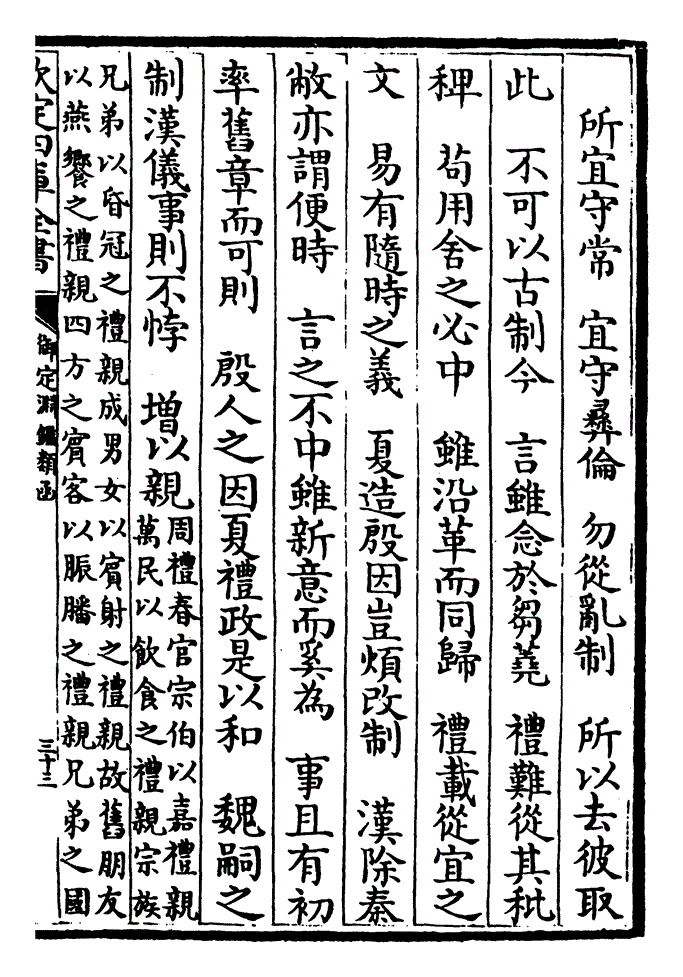 所宜守常　宜守彞倫　勿從亂制　所以去彼取
此　不可以古制今　言雖念於芻蕘　禮難從其秕
稗　茍用舍之必中　雖沿革而同歸　禮載從宜之
文　易有隨時之義　夏造殷因豈煩改制　漢除秦
敝亦謂便時　言之不中雖新意而奚為　事且有初
率舊章而可則　殷人之因夏禮政是以和　魏嗣之
制漢儀事則不悖　增以親
周禮春官宗伯以嘉禮親
萬民以飲食之禮親宗族
兄弟以昏冠之禮親成男女以賓射之禮親故舊朋友
以燕饗之禮親四方之賓客以脤膰之禮親兄弟之國
欽定四庫全書
御定淵鑑類函
三十三